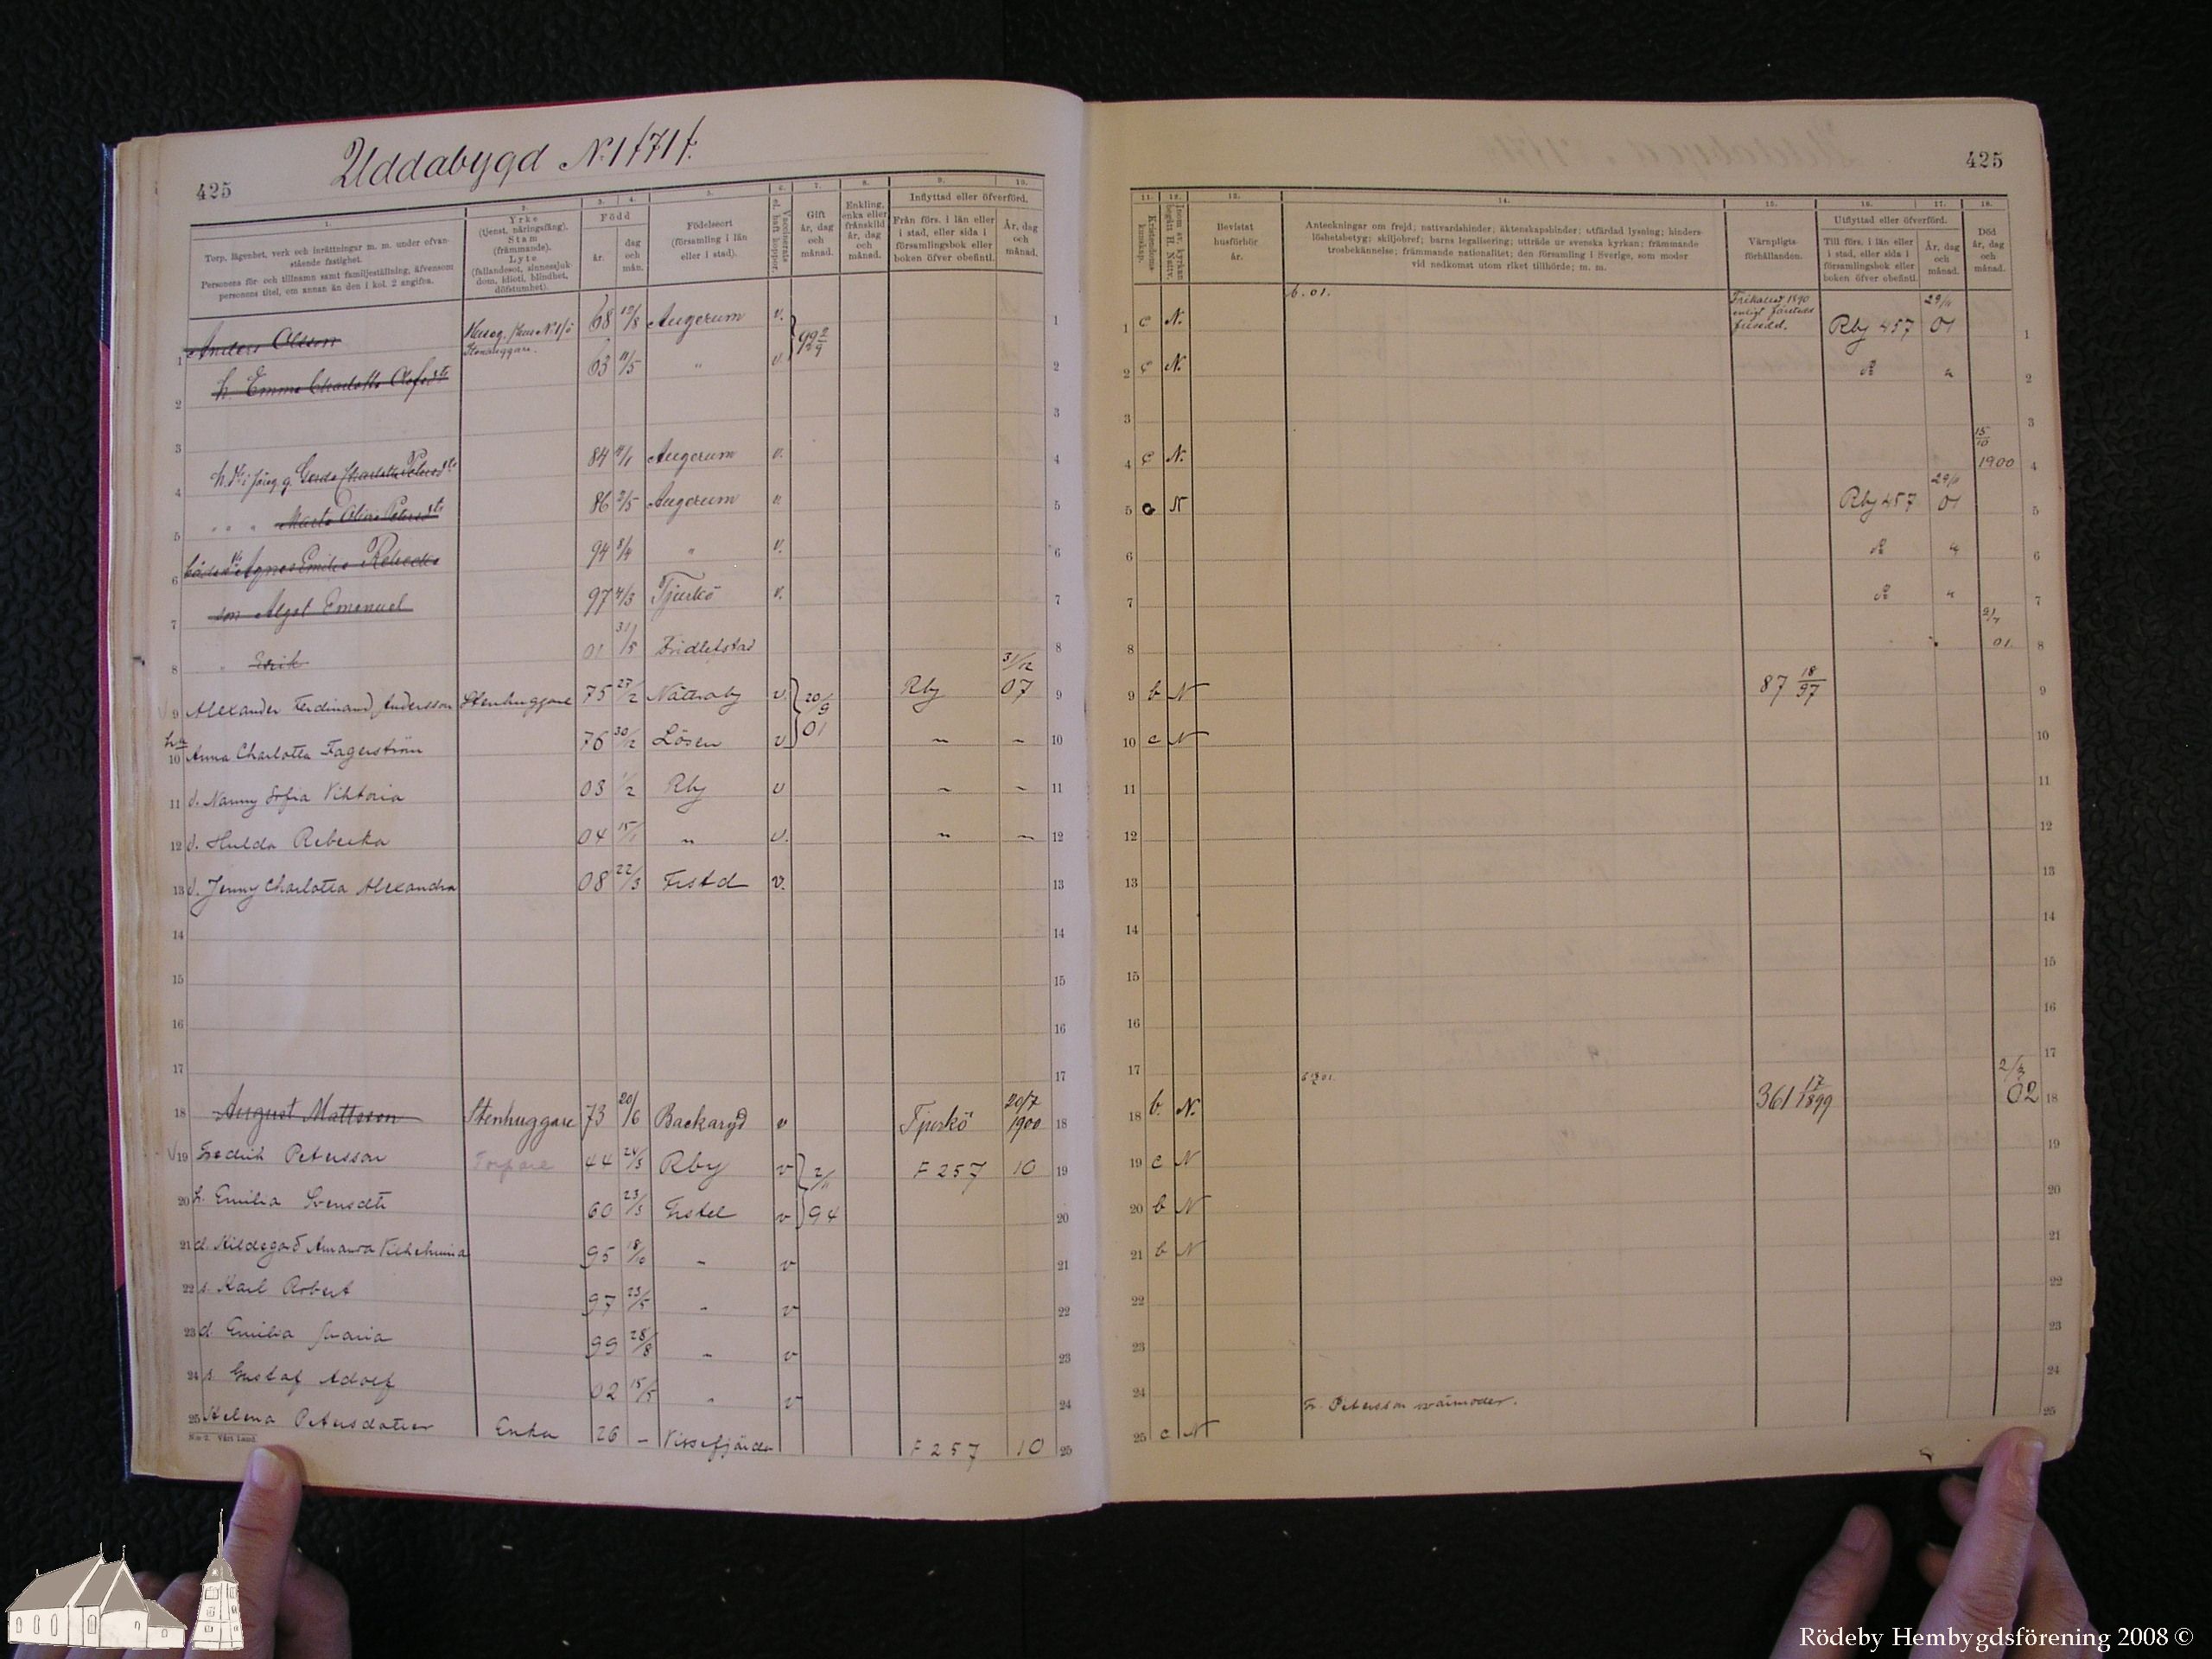 Uddabygd N:1
425
425
1.
2.
3.
4.
5.
6.
7.
8.
9.
10.
Torp, lägenhet, verk och inrättningar m. m. under ofvan-
stående fastighet.
Personens för- och tillnamn samt familjeställning, äfvensom
personens titel, om annan än den i kol. 2 angifna.
Yrke
(tjenst, näringsfång).
Stam
(främmande).
Lyte
(fallandesot, sinnessjuk-
dom, idioti, blindhet,
döfstumhet).
Född
år.
dag
och
mån.
Födelseort
(församling i län
eller i stad).
Vaccinerats
el. haft koppor.
Gift
år, dag
och
månad.
Enkling,
enka eller
frånskild
år, dag
och
månad.
Inflyttad eller öfverförd.
Från förs. i län eller
i stad, eller sida i
församlingsbok eller
boken öfver obefintl.
År, dag
och
månad.
1 Anders Olsson 68 19/8 Augerum v.
Stenhuggare.
2 h. Emma Charlotta 63 11/5 " v.
3
4 84 Augerum v.
5 86 2/5 Augerum v.
6 Agnes Emilia 94 8/4 " v.
7 son Algot Emanuel 97 4/3 Tjurkö v.
8 " Erik 01 31/5 Fridlefstad
9 Alexander Ferdinand Andersson Stenhuggare 75 27/2 Nättraby v. 20/9 01 Rby 31/12 07
10 Anna Charlotta Fagerström 76 Lösen v
11 d. Nanny Sofia Viktoria 03 Rby v
12 d. Hulda Rebecka 04 15/1 " v.
13 d. Jenny Charlotta Alexandra 08 22/3 Frstd v.
14
15
16
17
18 August Mattsson Stenhuggare 73 20/6 Backaryd v Tjurkö 20/7 1900
19 Fredrik Petersson Torpare 44 24/5 Rby v 2/11 94 F 257 10
20 h. Emilia Svensdtr 60 23/3 v
21 d. Hildegard Amanda Vilhelmina 95 18/10 " v
22 s. Karl Robert 97 23/5 " v
23 d. Emilia Maria 99 28/8 " v
24 s. Gustaf Adolf 02 15/5 " v
25 Helena Petersdotter Enka 26 – Vissefjärda F 257 10
N:o 2. Vårt Land.
11.
12.
13.
14.
15.
16.
17.
18.
Kristendoms-
kunskap.
Bevistat
husförhör
år.
Anteckningar om frejd; nattvardshinder; äktenskapshinder; utfärdad lysning; hinders-
löshetsbetyg; skiljobref; barns legalisering; utträde ur svenska kyrkan; främmande
trosbekännelse; främmande nationalitet; den församling i Sverige, som moder
vid nedkomst utom riket tillhörde; m. m.
Värnpligts-
förhållanden.
Utflyttad eller öfverförd.
Till förs. i län eller
i stad, eller sida i
församlingsbok eller
boken öfver obefintl.
År, dag
och
månad.
Död
år, dag
och
månad.
b. 01.
1 c N. Frikallad 1890 Rby 457 29/11 01 1
2 c N. 2
3 3
4 c N. 15/10 1900 4
5 c N Rby 457 29/11 01 5
6 6
7 7
8 01 8
9 b N 87 18/97 9
10 c N 10
11 11
12 12
13 13
14 14
15 15
16 16
17 17
18 b. N. 361 17/1899 02 18
19 c N 19
20 b N 20
21 b N 21
22 22
23 23
24 24
Fr. Petersson svärmoder.
25 c N 25
Rödeby Hembygdsförening 2008 ©